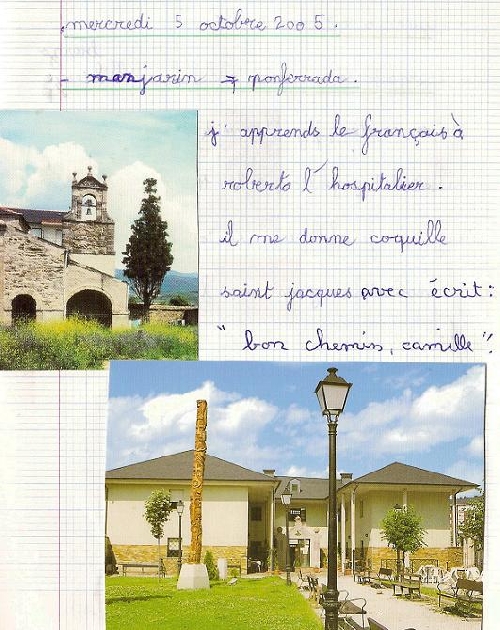 mercredi 5 octobre 2005.
- manjarin → ponferrada.
j'apprends le français à
roberto l'hospitalier.
il me donne coquille
saint jacques avec écrit:
"bon chemin, camille"!